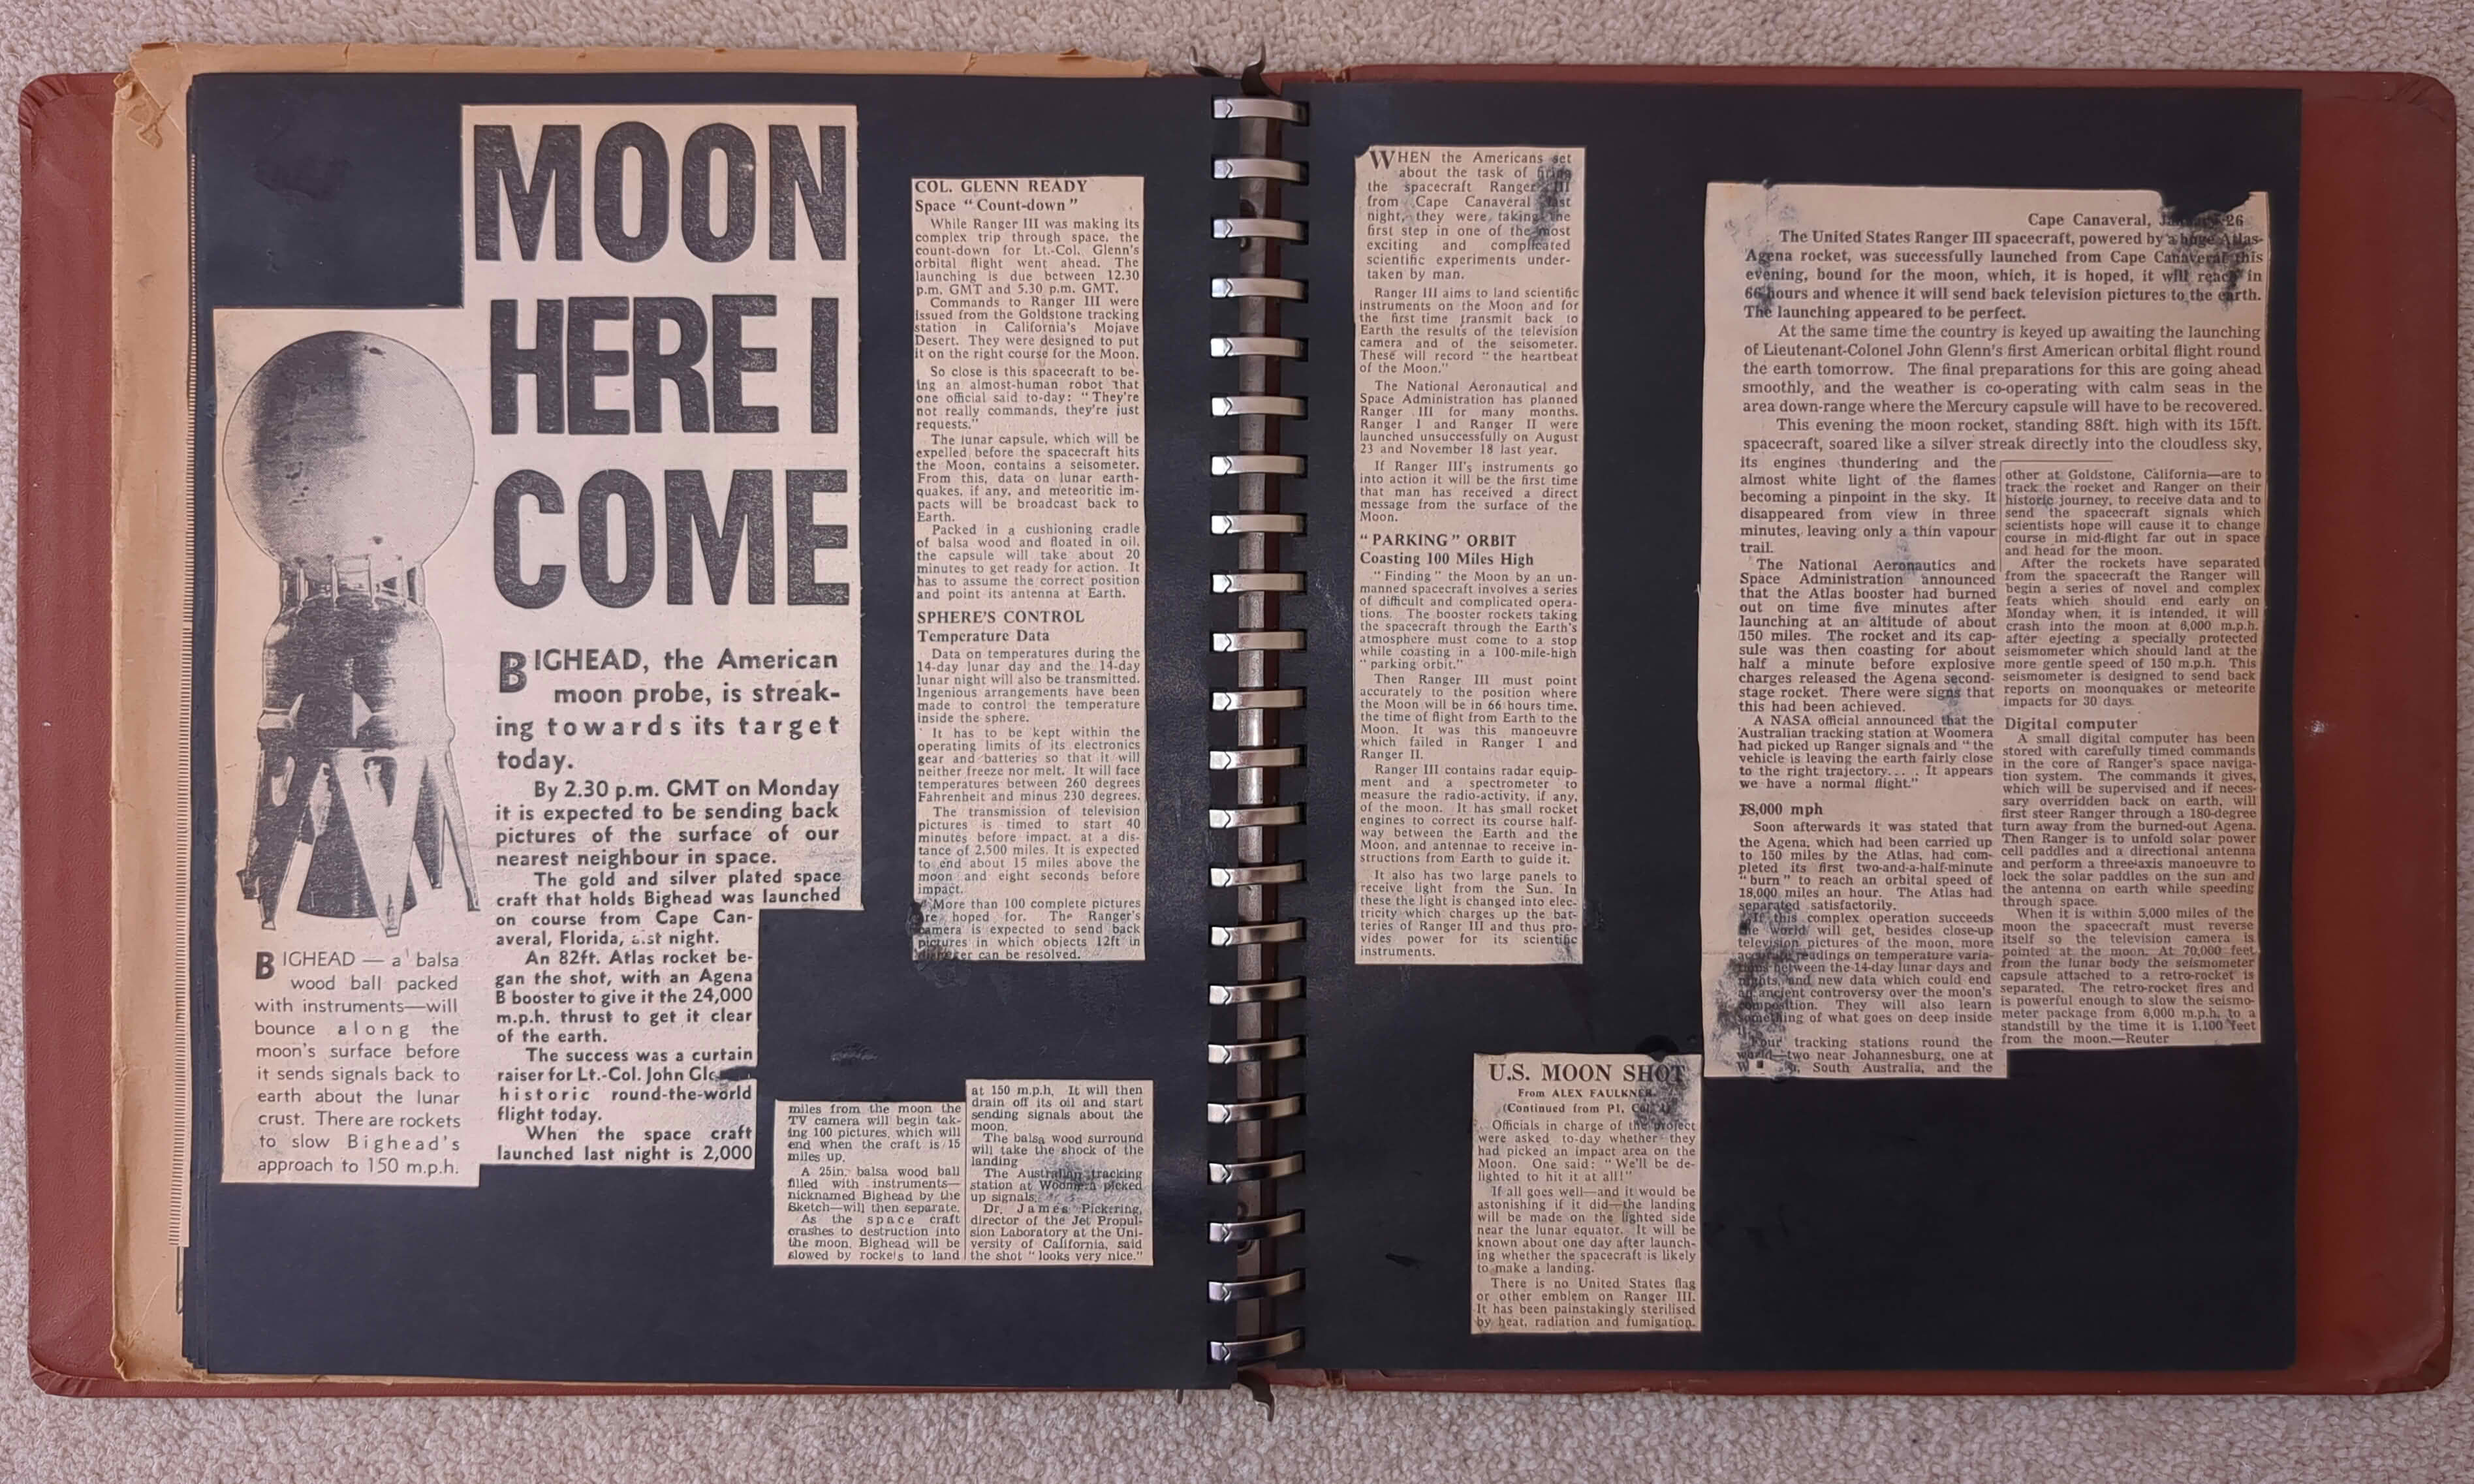 MOON
HERE I
COME
BIGHEAD, the American
moon probe, is streak-
ing towards its target
today.
By 2.30 p.m. GMT on Monday
it is expected to be sending back
pictures of the surface of our
nearest neighbour in space.
The gold and silver plated space
craft that holds Bighead was launched
on course from Cape Can-
averal, Florida, night.
An 82ft. Atlas rocket be-
gan the shot, with an Agena
B booster to give it the 24,000
m.p.h. thrust to get it clear
of the earth.
The success was a curtain
raiser for Lt.-Col. John
historic round-the-world
flight today.
When the space craft
launched last night is 2,000
BIGHEAD — a balsa
wood ball packed
with instruments—will
bounce along the
moon's surface before
it sends signals back to
earth about the lunar
crust. There are rockets
to slow Bighead's
approach to 150 m.p.h.
miles from the moon the
TV camera will begin tak-
ing 100 pictures, which will
end when the craft is 15
miles up.
A 25in. balsa wood ball
filled with instruments—
nicknamed Bighead by the
Sketch—will then separate.
As the space craft
crashes to destruction into
the moon, Bighead will be
slowed by rockets to land
at 150 m.p.h. It will then
drain off its oil and start
sending signals about the
moon.
The balsa wood surround
will take the shock of the
landing
The Australian tracking
station at Woomera picked
up signals.
Dr. James Pickering,
director of the Jet Propul-
sion Laboratory at the Uni-
versity of California, said
the shot "looks very nice."
COL. GLENN READY
Space "Count-down"
While Ranger III was making its
complex trip through space, the
count-down for Lt.-Col. Glenn's
orbital flight went ahead. The
launching is due between 12.30
p.m. GMT and 5.30 p.m. GMT.
Commands to Ranger III were
issued from the Goldstone tracking
station in California's Mojave
Desert. They were designed to put
it on the right course for the Moon.
So close is this spacecraft to be-
ing an almost-human robot that
one official said to-day: "They're
not really commands, they're just
requests."
The lunar capsule, which will be
expelled before the spacecraft hits
the Moon, contains a seisometer.
From this, data on lunar earth-
quakes, if any, and meteoritic im-
pacts will be broadcast back to
Earth.
Packed in a cushioning cradle
of balsa wood and floated in oil,
the capsule will take about 20
minutes to get ready for action. It
has to assume the correct position
and point its antenna at Earth.
SPHERE'S CONTROL
Temperature Data
Data on temperatures during the
14-day lunar day and the 14-day
lunar night will also be transmitted.
Ingenious arrangements have been
made to control the temperature
inside the sphere.
It has to be kept within the
operating limits of its electronics
gear and batteries so that it will
neither freeze nor melt. It will face
temperatures between 260 degrees
Fahrenheit and minus 230 degrees.
The transmission of television
pictures is timed to start 40
minutes before impact, at a dis-
tance of 2,500 miles. It is expected
to end about 15 miles above the
moon and eight seconds before
impact.
More than 100 complete pictures
are hoped for. The Ranger's
camera is expected to send back
pictures in which objects 12ft in
can be resolved.
WHEN the Americans set
about the task of firing
the spacecraft Ranger III
from Cape Canaveral last
night, they were taking the
first step in one of the most
exciting and complicated
scientific experiments under-
taken by man.
Ranger III aims to land scientific
instruments on the Moon and for
the first time transmit back to
Earth the results of the television
camera and of the seisometer.
These will record "the heartbeat
of the Moon."
The National Aeronautical and
Space Administration has planned
Ranger III for many months.
Ranger I and Ranger II were
launched unsuccessfully on August
23 and November 18 last year.
If Ranger III's instruments go
into action it will be the first time
that man has received a direct
message from the surface of the
Moon.
"PARKING" ORBIT
Coasting 100 Miles High
"Finding" the Moon by an un-
manned spacecraft involves a series
of difficult and complicated opera-
tions. The booster rockets taking
the spacecraft through the Earth's
atmosphere must come to a stop
while coasting in a 100-mile-high
"parking orbit."
Then Ranger III must point
accurately to the position where
the Moon will be in 66 hours time,
the time of flight from Earth to the
Moon. It was this manoeuvre
which failed in Ranger I and
Ranger II.
Ranger III contains radar equip-
ment and a spectrometer to
measure the radio-activity, if any,
of the moon. It has small rocket
engines to correct its course half-
way between the Earth and the
Moon, and antennae to receive in-
structions from Earth to guide it.
It also has two large panels to
receive light from the Sun. In
these the light is changed into elec-
tricity which charges up the bat-
teries of Ranger III and thus pro-
vides power for its scientific
instruments.
U.S. MOON SHOT
From ALEX FAULKNER
(Continued from P1, Col.
Officials in charge of the project
were asked to-day whether they
had picked an impact area on the
Moon. One said: "We'll be de-
lighted to hit it at all!"
If all goes well—and it would be
astonishing if it did—the landing
will be made on the lighted side
near the lunar equator. It will be
known about one day after launch-
ing whether the spacecraft is likely
to make a landing.
There is no United States flag
or other emblem on Ranger III.
It has been painstakingly sterilised
by heat, radiation and fumigation.
Cape Canaveral, January 26
The United States Ranger III spacecraft, powered by a huge Atlas-
Agena rocket, was successfully launched from Cape Canaveral this
evening, bound for the moon, which, it is hoped, it will reach in
66 hours and whence it will send back television pictures to the earth.
The launching appeared to be perfect.
At the same time the country is keyed up awaiting the launching
of Lieutenant-Colonel John Glenn's first American orbital flight round
the earth tomorrow. The final preparations for this are going ahead
smoothly, and the weather is co-operating with calm seas in the
area down-range where the Mercury capsule will have to be recovered.
This evening the moon rocket, standing 88ft. high with its 15ft.
spacecraft, soared like a silver streak directly into the cloudless sky,
its engines thundering and the
almost white light of the flames
becoming a pinpoint in the sky. It
disappeared from view in three
minutes, leaving only a thin vapour
trail.
The National Aeronautics and
Space Administration announced
that the Atlas booster had burned
out on time five minutes after
launching at an altitude of about
150 miles. The rocket and its cap-
sule was then coasting for about
half a minute before explosive
charges released the Agena second-
stage rocket. There were signs that
this had been achieved.
A NASA official announced that the
Australian tracking station at Woomera
had picked up Ranger signals and "the
vehicle is leaving the earth fairly close
to the right trajectory.... It appears
we have a normal flight."
18,000 mph
Soon afterwards it was stated that
the Agena, which had been carried up
to 150 miles by the Atlas, had com-
pleted its first two-and-a-half-minute
"burn" to reach an orbital speed of
18,000 miles an hour. The Atlas had
separated satisfactorily.
If this complex operation succeeds
the world will get, besides close-up
television pictures of the moon, more
accurate readings on temperature varia-
tions between the 14-day lunar days and
nights, and new data which could end
an ancient controversy over the moon's
composition. They will also learn
something of what goes on deep inside
Four tracking stations round the
world—two near Johannesburg, one at
South Australia, and the
other at Goldstone, California—are to
track the rocket and Ranger on their
historic journey, to receive data and to
send the spacecraft signals which
scientists hope will cause it to change
course in mid-flight far out in space
and head for the moon.
After the rockets have separated
from the spacecraft the Ranger will
begin a series of novel and complex
feats which should end early on
Monday when, it is intended, it will
crash into the moon at 6,000 m.p.h.
after ejecting a specially protected
seismometer which should land at the
more gentle speed of 150 m.p.h. This
seismometer is designed to send back
reports on moonquakes or meteorite
impacts for 30 days.
Digital computer
A small digital computer has been
stored with carefully timed commands
in the core of Ranger's space naviga-
tion system. The commands it gives,
which will be supervised and if neces-
sary overridden back on earth, will
first steer Ranger through a 180-degree
turn away from the burned-out Agena.
Then Ranger is to unfold solar power
cell paddles and a directional antenna
and perform a three-axis manoeuvre to
lock the solar paddles on the sun and
the antenna on earth while speeding
through space.
When it is within 5,000 miles of the
moon the spacecraft must reverse
itself so the television camera is
pointed at the moon. At 70,000 feet
from the lunar body the seismometer
capsule attached to a retro-rocket is
separated. The retro-rocket fires and
is powerful enough to slow the seismo-
meter package from 6,000 m.p.h. to a
standstill by the time it is 1,100 feet
from the moon.—Reuter